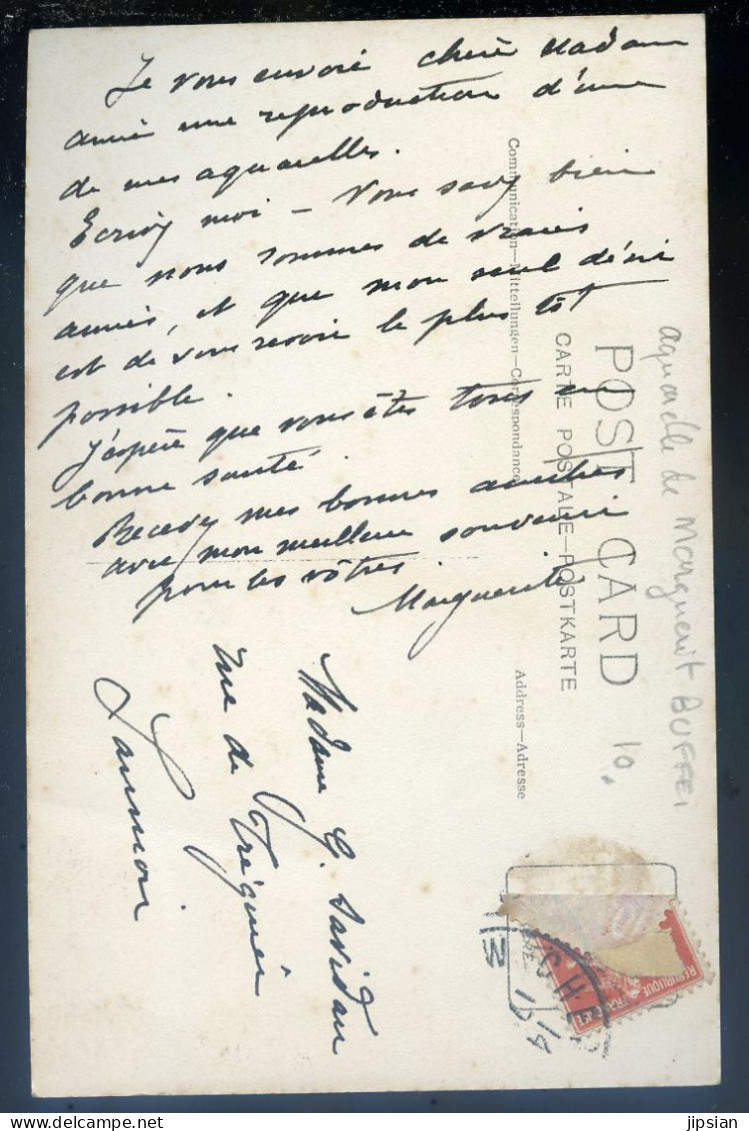 Je vous envoie chère Madame
amie une reproduction d'une
de mes aquarelles.
Ecrivez moi – Vous savez bien
que nous sommes de vraies
amies, et que mon seul désir
est de vous revoir le plus tôt
possible.
J'espère que vous êtes tous en
bonne santé.
Recevez mes bonnes amitiés
avec mon meilleur souvenir
pour les vôtres.
Marguerite
Madame G. Savidan
rue de Tréguier
Lannion
Communication—Mitteilungen—Correspondance
CARNE POSTALE—POSTKARTE
POST CARD
Address—Adresse
aquarelle de Marguerit BUFFEI
10.
REPUBLIQUE FRANÇAISE
jipsian